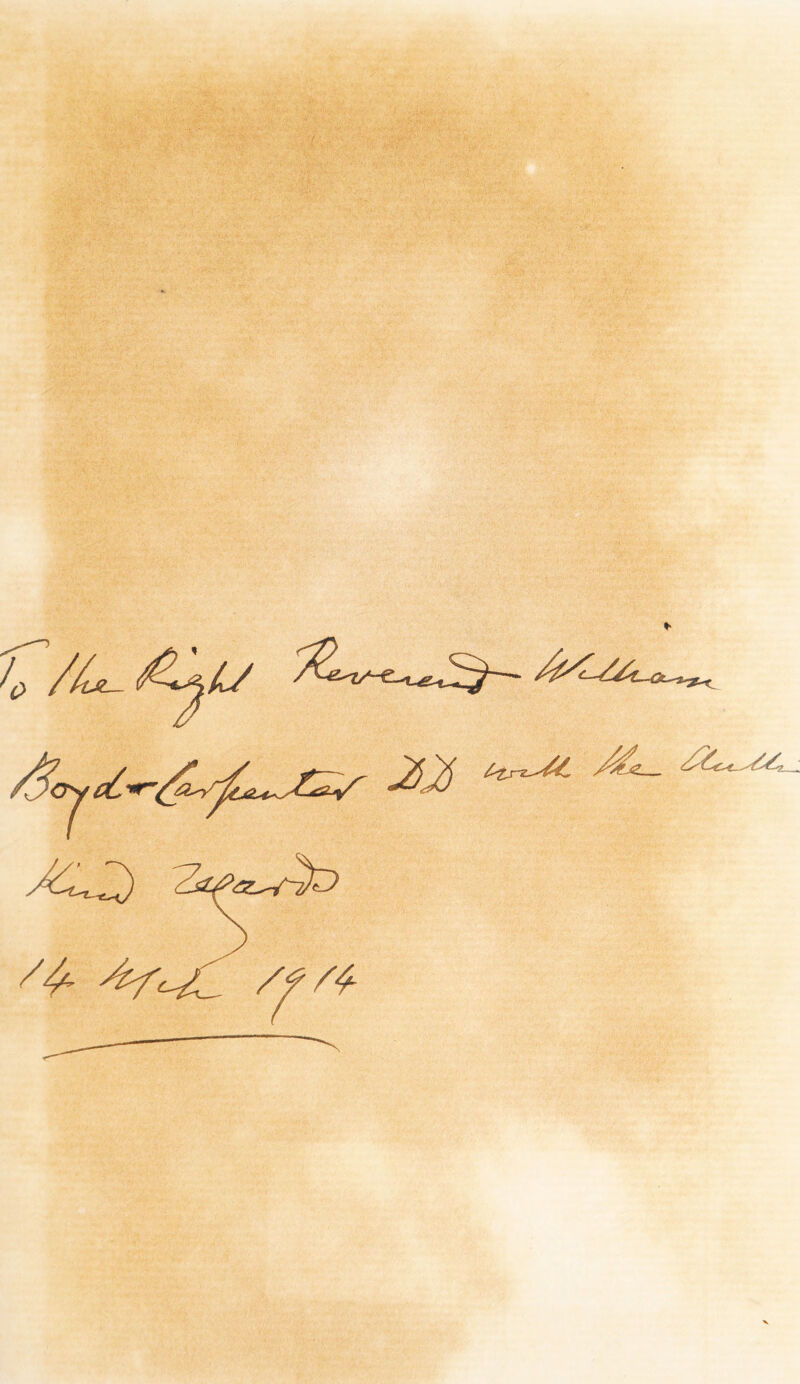 To the Right Reverend William
Boyd-Carpenter DD with the
Kind regards
14 Mch 1914